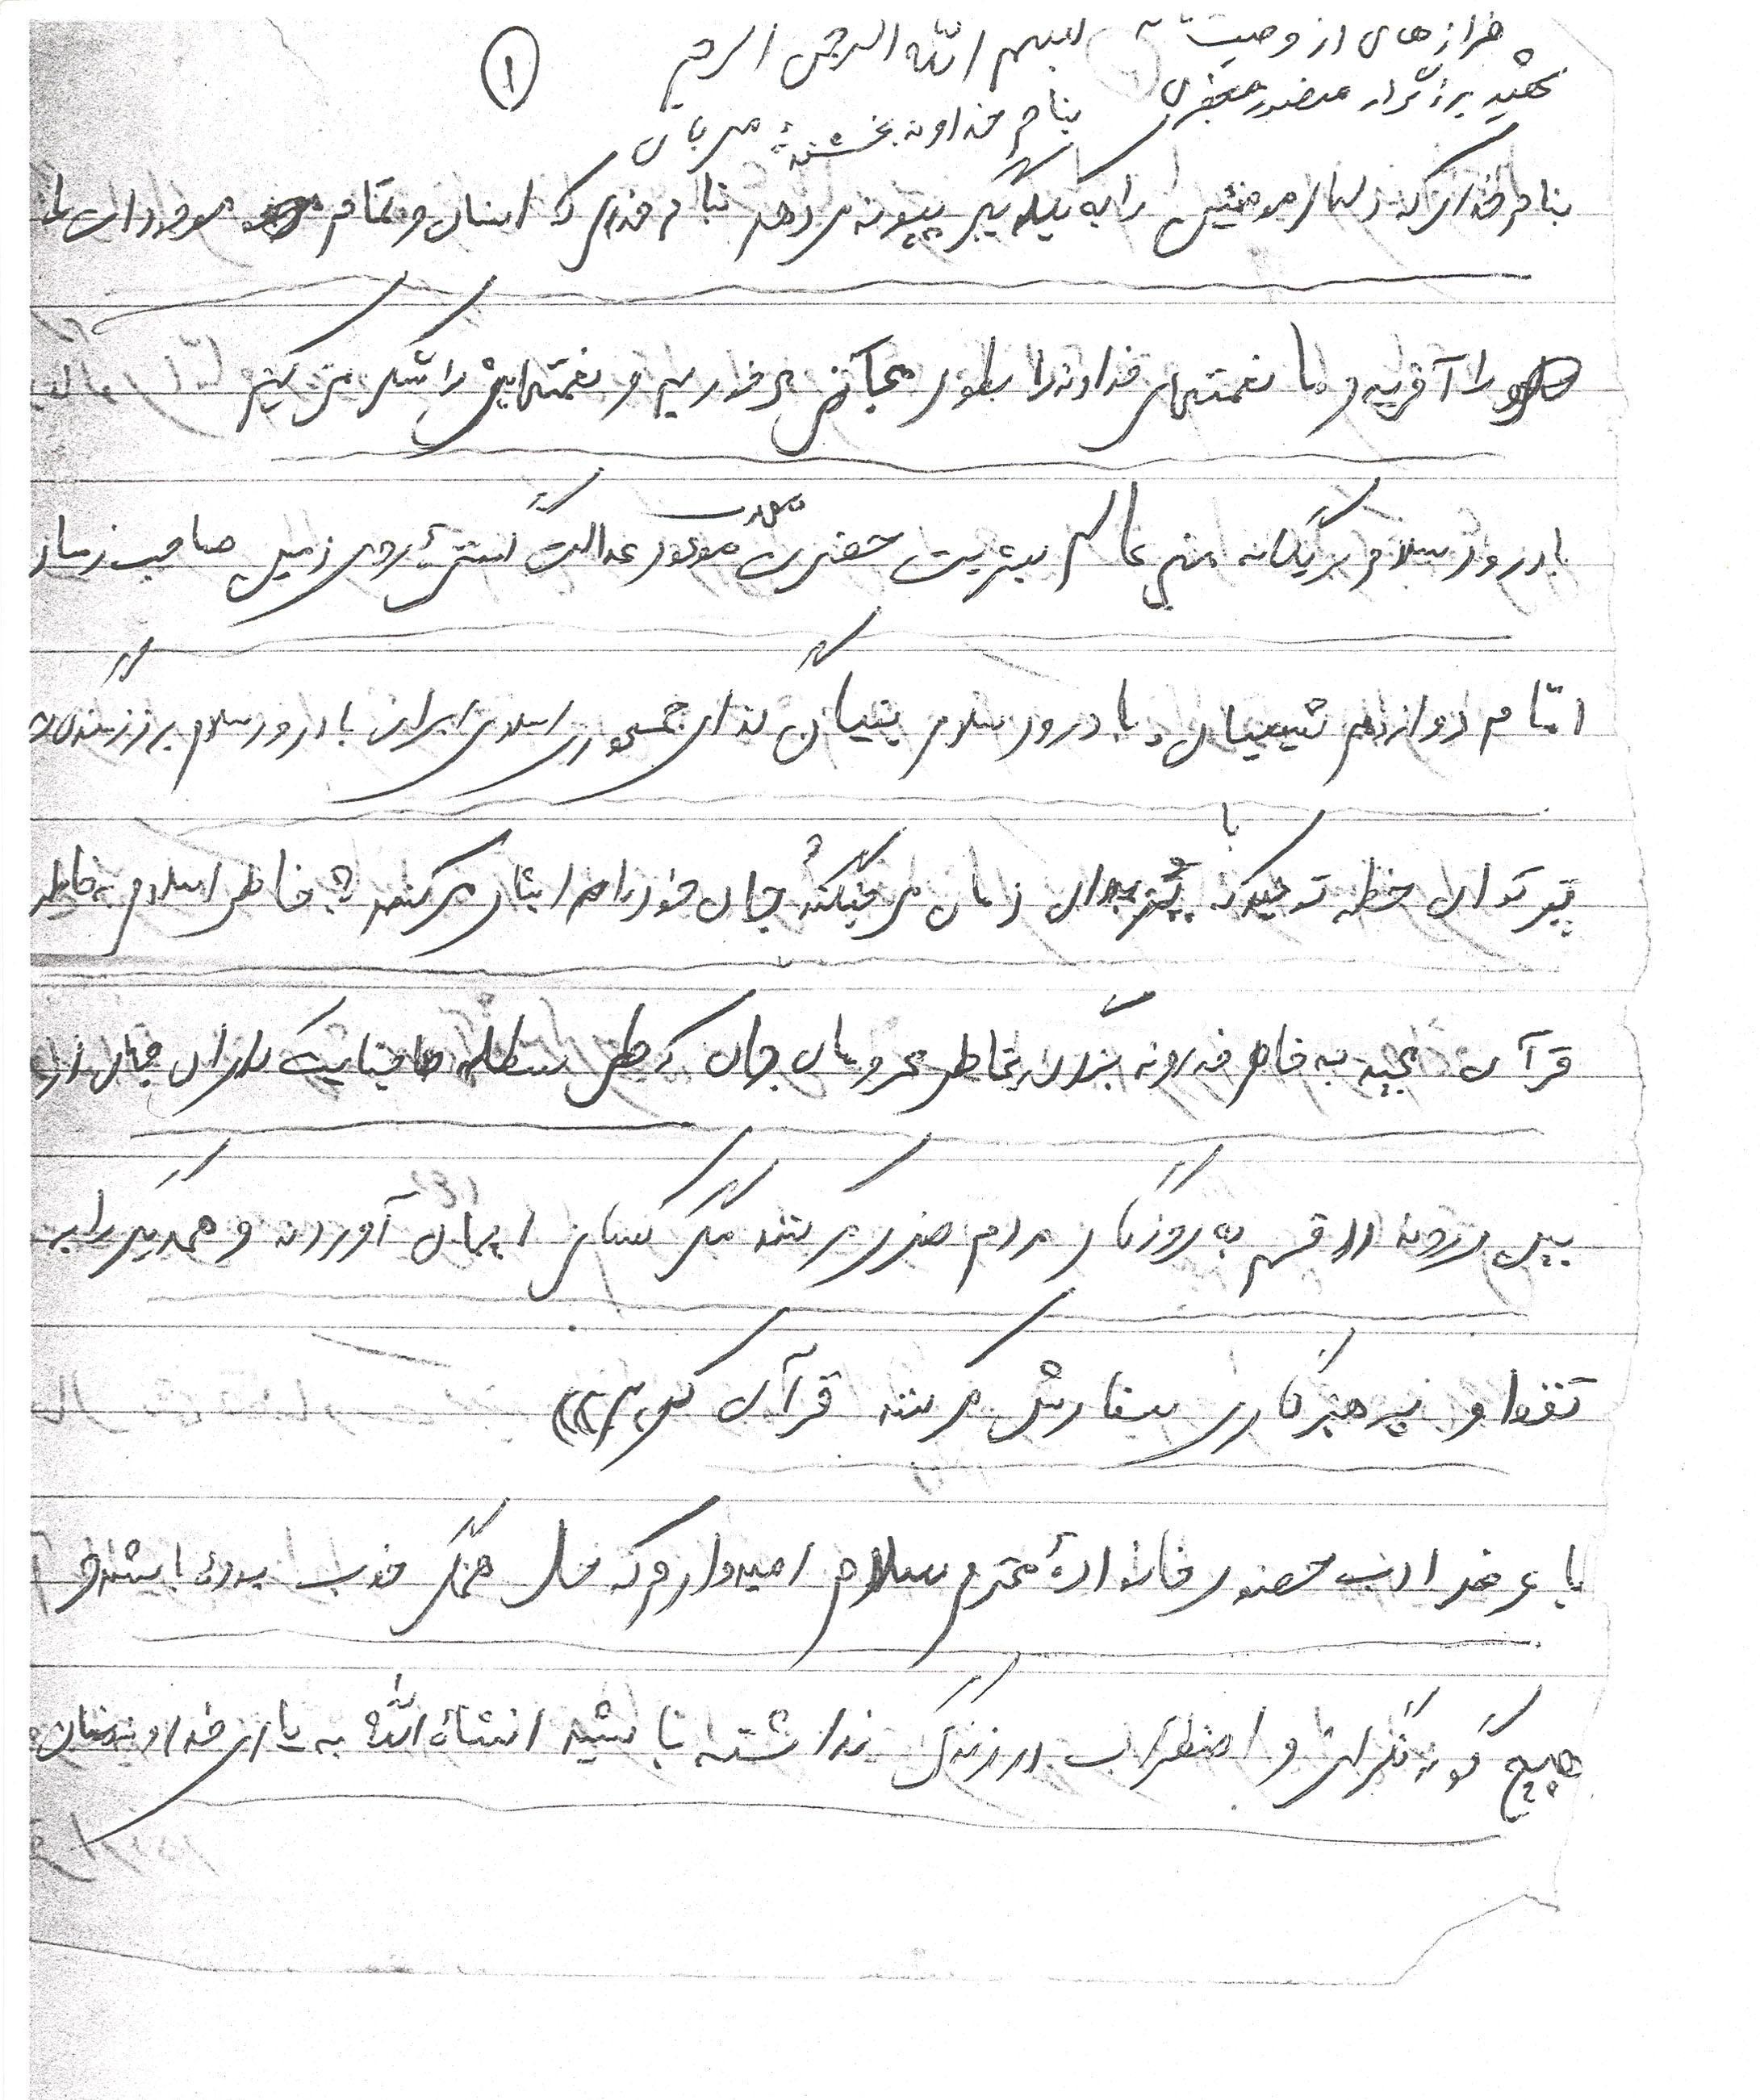 فرازهای از وصیت
شهید بزرگوار منصور جعفری
بسم الله الرحمن الرحیم
۱
بنام خداوند بخشنده مهربان
بنام خدای که دلهای مومنین را به یکدیگر پیوند می دهد بنام خدای که انسان و تمام موجودات
را آفرید و ما نعمتهای خداوند را بطور مجانی می خوریم و نعمتهایش را شکر نمی کنیم
با درود سلام بر یگانه منجی عالم بشریت حضرت مهدی موعود عدالت گستر روی زمین صاحب زمان
امام دوازدهم شیعیان با درود سلام بنیان گذار جمهوری اسلامی ایران با درود سلام بر رزمندگان
پرتوان خطه توحید که با زمان می جنگند و جان خود را هم ایثار می کنند به خاطر اسلام به خاطر
قرآن مجید به خاطر خداوند بزرگ بخاطر محرومان جهان که طی جنایت کاران جهان
قسم به روزگار مردم ضرر می کنند مگر کسانی ایمان آوردند و همدیگر را به
تقوا و پرهیزگاری سفارش می کنند قرآن کریم)))
با عرض ادب حضور خانواده محترم سلام امیدوارم که حال همگی خوب بوده باشد و
هیچ گونه نگرانی و اضطراب در زندگی نداشته باشید انشاءالله به یاری خداوند منان